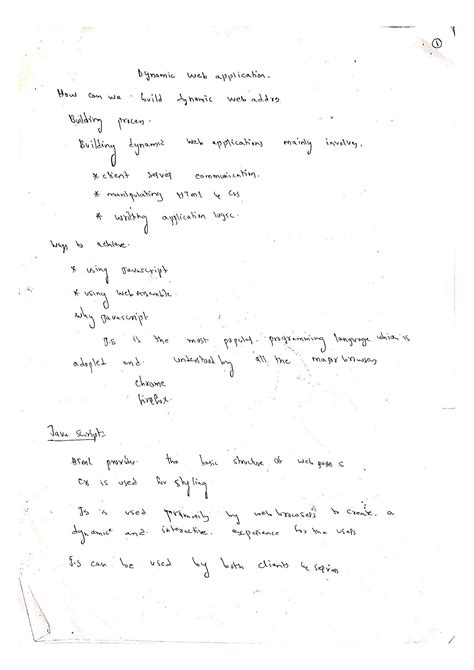 1
Dynamic web application.
How can we build dynamic web addrs
Building process.
Building dynamic web applications mainly involves.
* client server communication.
* manipulating HTML & CSS
* writing application logic.
Ways to achieve.
* using Javascript
* using web assemble.
Why Javascript
J.S is the most popular programming language which is
adopted and understood by all the major browsers
chrome
firefox.
Java Scripts
Html provides the basic structure of web pages
CSS is used for styling
JS is used primarily by web browsers to create a
dynamic and interactive experience for the users
J.S can be used by both clients &